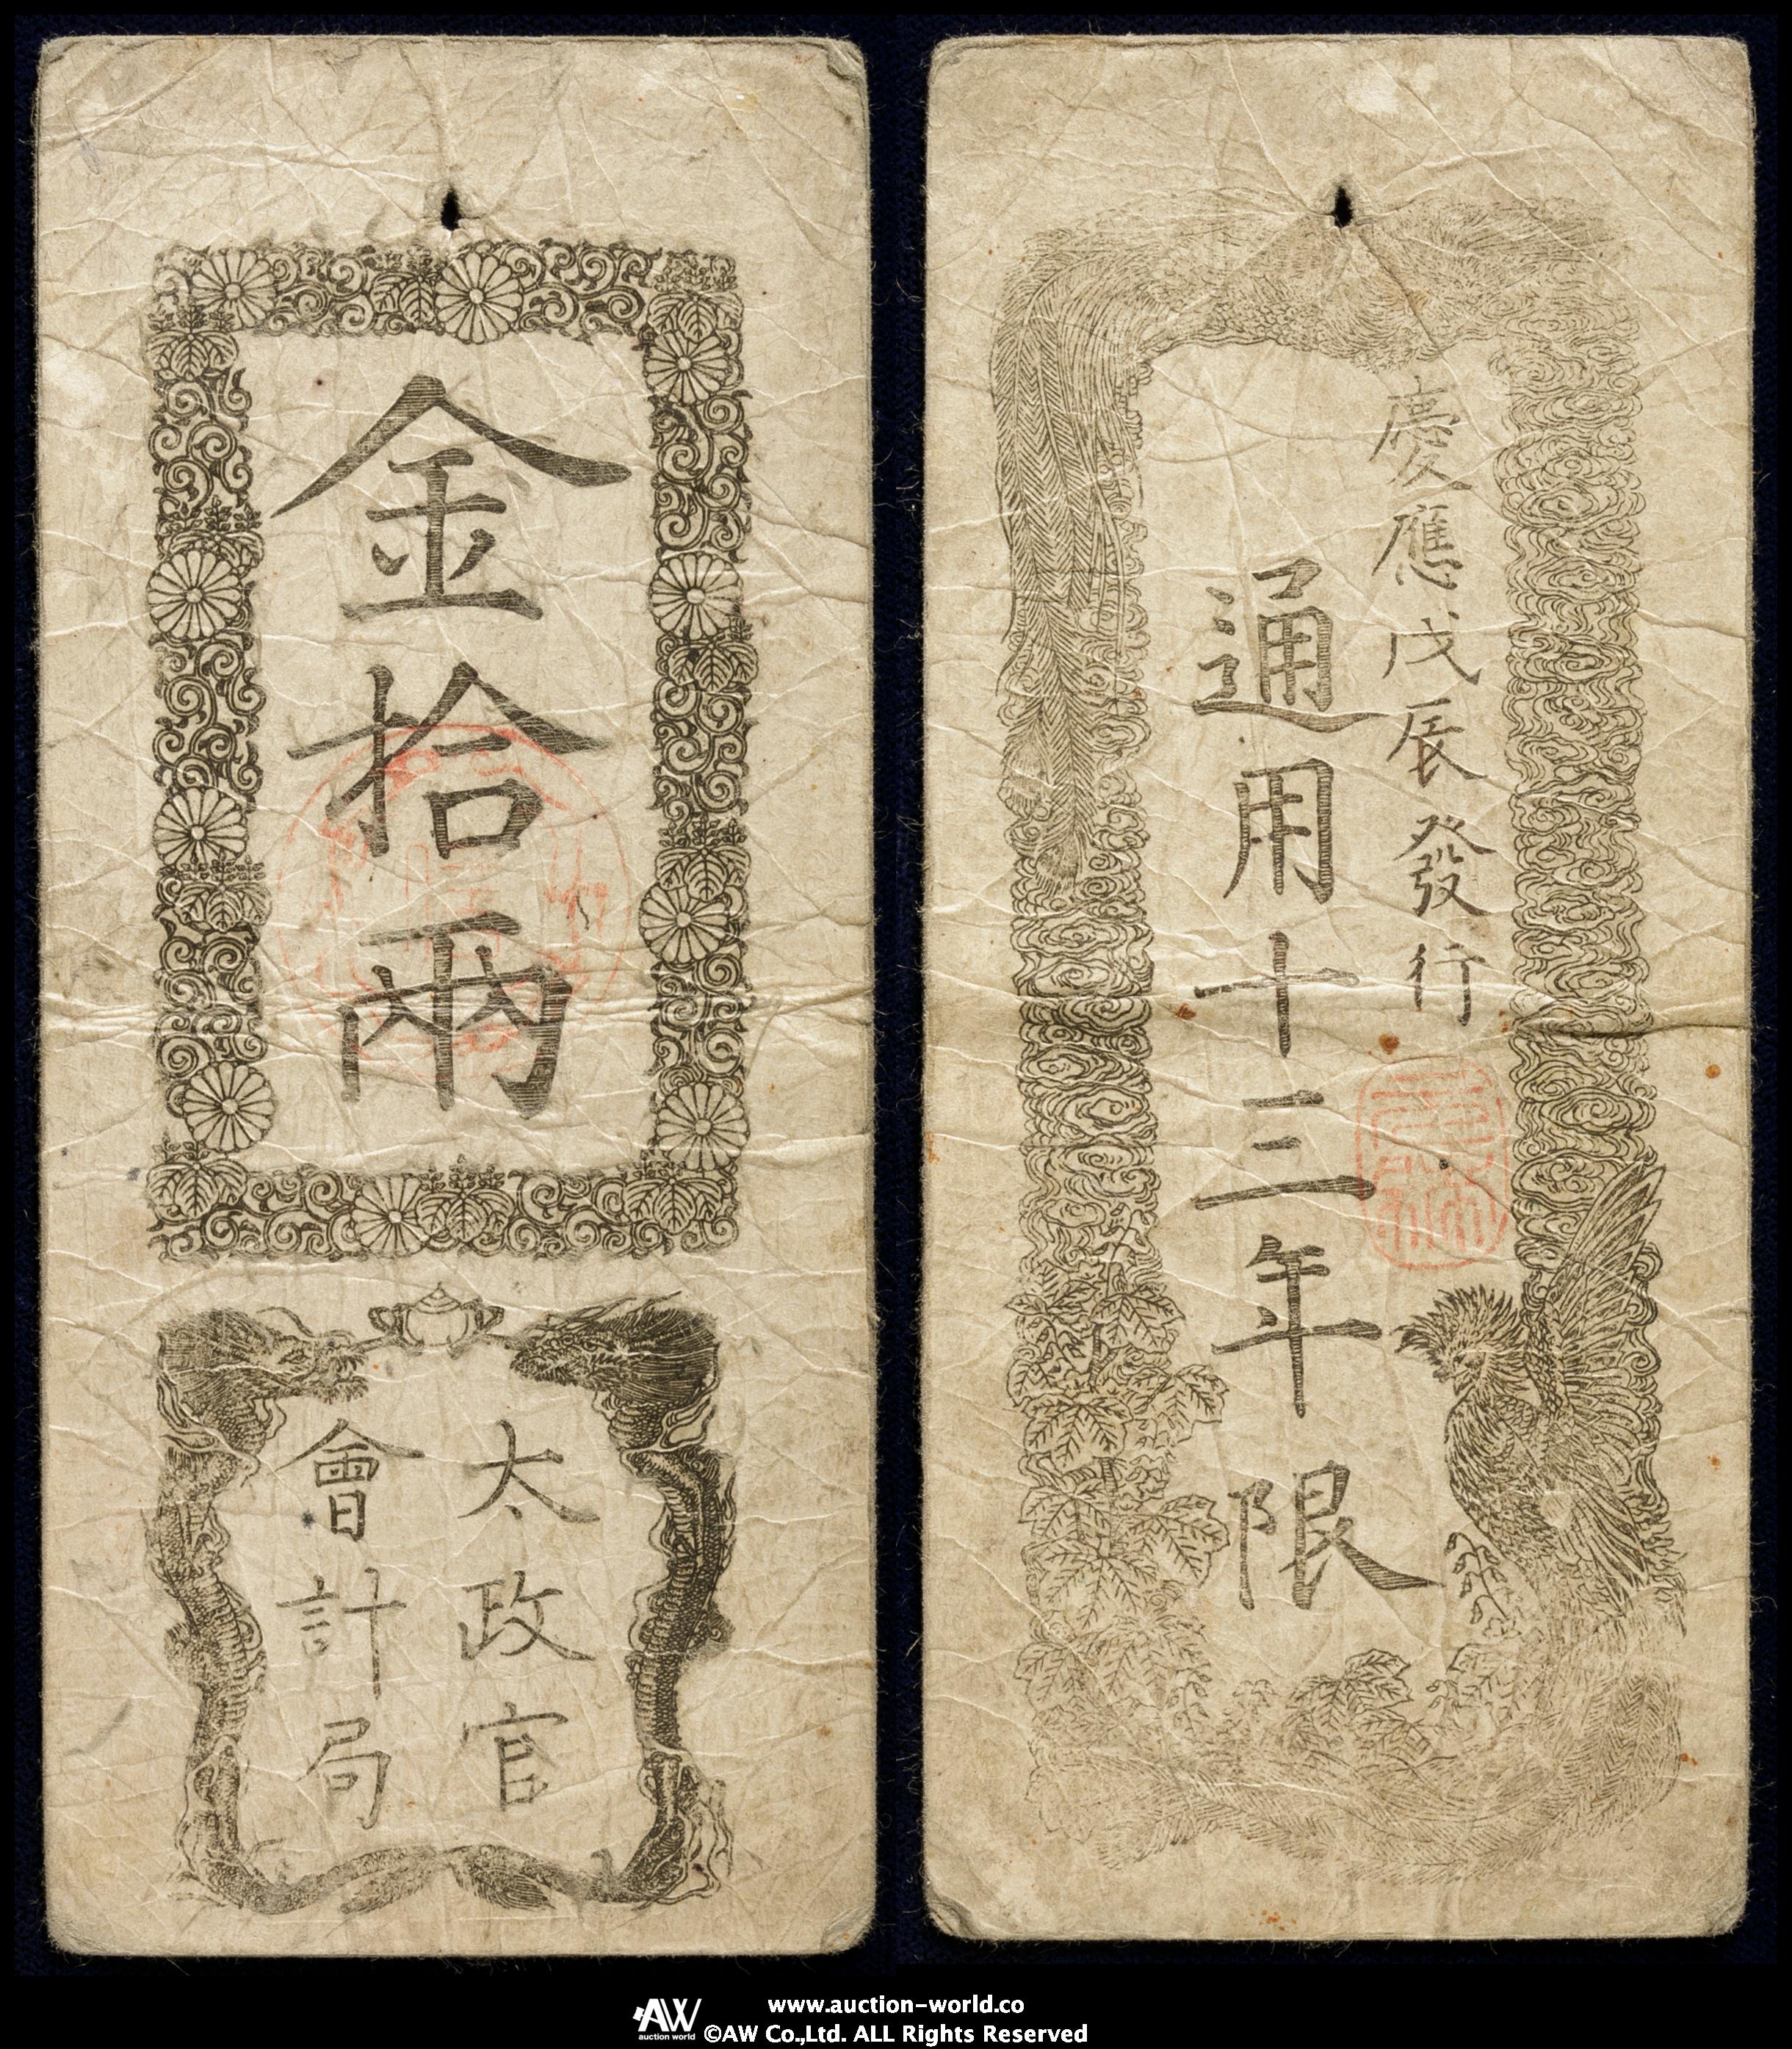 金拾兩
太政官
會計局
慶應戊辰發行
通用十三年限
AW
auction world
www.auction-world.co
©AW Co.,Ltd. ALL Rights Reserved